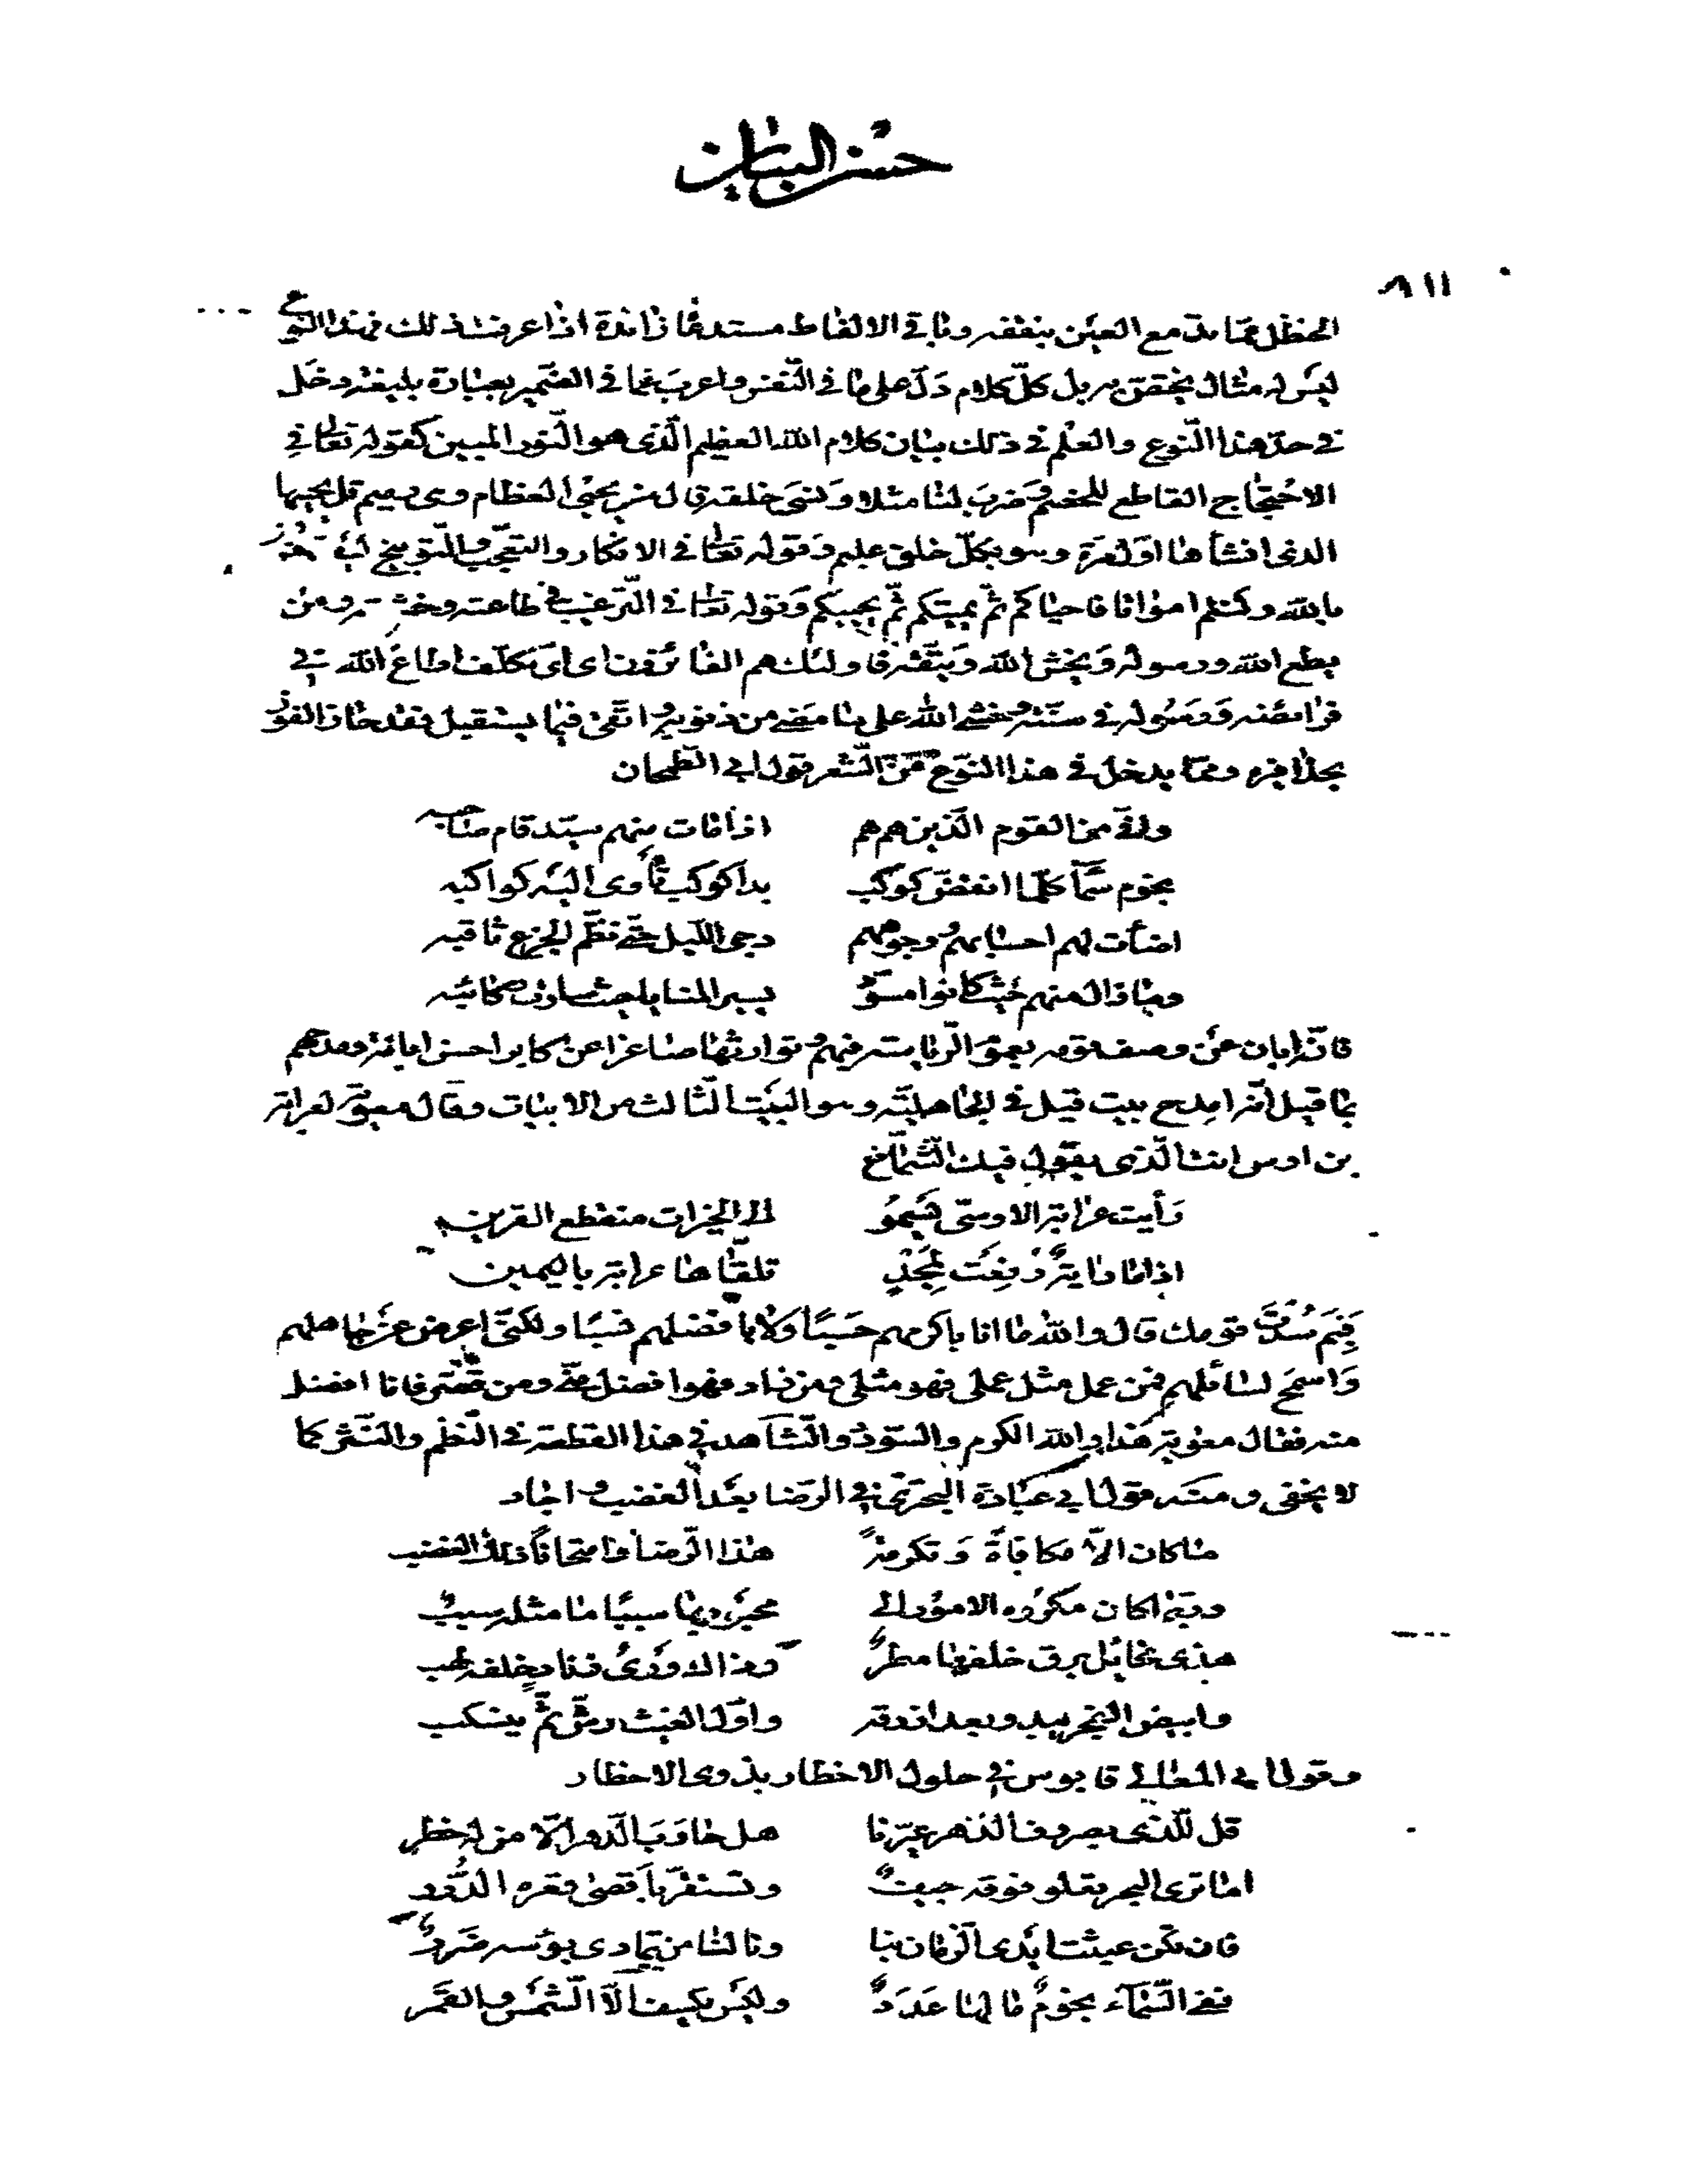 حسن البيان
٨١١
الحنظل مما بدمع العين ينقفه وباقي الالفاظ مستدعاة زائدة اذا عرفت ذلك فهذا النوع
ليس له مثال يختص به بل كل كلام دل على ما في النفس واعرب عما في الضمير بعبارة بليغة دخل
في حد هذا النوع والعلم في ذلك بيان كلام الله العظيم الذي هو النور المبين كقوله تعالى في
الاحتجاج القاطع للخصم وضرب لنا مثلا ونسى خلقه قال من يحيى العظام وهى رميم قل يحييها
الذى انشأها اول مرة وهو بكل خلق عليم وقوله تعالى في الانكار والتعجب والتوبيخ كيف تكفرون
بالله وكنتم امواتا فاحياكم ثم يميتكم ثم يحييكم وقوله تعالى في الترغيب في طاعته وخشيته ومن
يطع الله ورسوله ويخش الله ويتقه فاولئك هم الفائزون اى اى مكلف اطاع الله في
فرائضه ورسوله في سنته وخشى الله على ما مضى من ذنوبه واتقى فيما يستقبل فقد حاز الفوز
بحذافيره ومما يدخل في هذا النوع من الشعر قول ابي الطمحان
وانى من القوم الذين هم هم اذا مات منهم سيد قام صاحبه
نجوم سماء كلما انقض كوكب بدا كوكب تأوى اليه كواكبه
اضاءت لهم احسابهم ووجوههم دجى الليل حتى نظم الجزع ثاقبه
وما زال منهم حيث كانوا مسود تسير المنايا حيث سارت كتائبه
فانه ابان عن وصف قومه بعمق الرياسة فيهم وتوارثها صاغرا عن كابر احسن ابانة ومدحهم
بما قيل انه امدح بيت قيل في الجاهلية وهو البيت الثالث من الابيات وقال معوية لعرابة
بن اوس انت الذى يقول فيك الشماخ
رأيت عرابة الاوسى يسمو الى الخيرات منقطع القرين
اذا ما راية رفعت لمجد تلقاها عرابة باليمين
فبم سدت قومك قال والله ما انا باكرمهم حسبا ولا بافضلهم نسبا ولكنى اعرض عن جاهلهم
واسمح لسائلهم فمن عمل مثل عملى فهو مثلى ومن زاد فهو افضل منى ومن قصر فانا افضل
منه فقال معوية هذا والله الكرم والسودد والشاهد في هذا القطعة في النظم والنثر كما
لا يخفى ومنه قول ابي عبادة البحترى في الرضا بعد الغضب واجاد
ما كان الا مكافاة وتكرمة هذا الرضا وامتحانا ذلك الغضب
وربما كان مكروه الامور الى محبوبها سببا ما مثله سبب
هذى مخائل برق خلفها مطر وذاك ورى زناد خلفه لهب
وابيض الفجر يبدو بعد ازرقه واول الغيث رش ثم ينسكب
وقول ابي المعالى قابوس في حلول الاخطار بذوى الاخطار
قل للذى بصروف الدهر عيرنا هل حارب الدهر الا من له خطر
اما ترى البحر تعلو فوقه جيف وتستقر باقصى قعره الدرر
فان تكن عبثت ايدى الزمان بنا ونالنا من تمادى بؤسه ضرر
ففى السماء نجوم ما لها عدد وليس يكسف الا الشمس والقمر